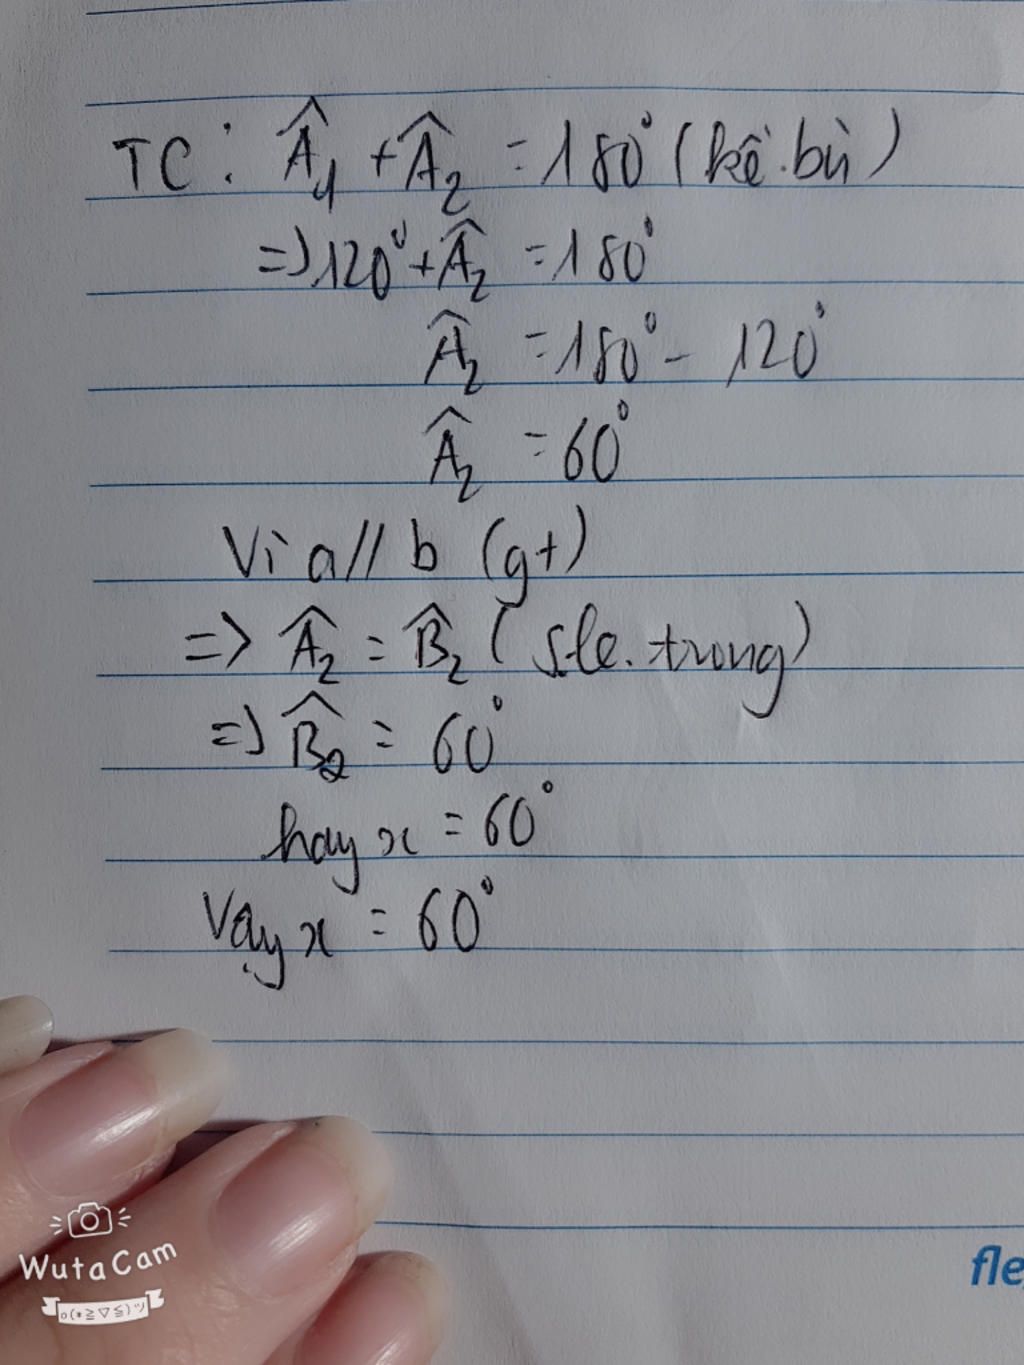 TC: Â₁ + Â₂ = 180° (kề.bù)
=> 120° + Â₂ = 180°
Â₂ = 180° - 120°
Â₂ = 60°
Vì a // b (gt)
=> Â₂ = B̂₂ (sle.trong)
=> B̂₂ = 60°
hay x = 60°
Vậy x = 60°
WutaCam
o(*≧▽≦)ツ
fle